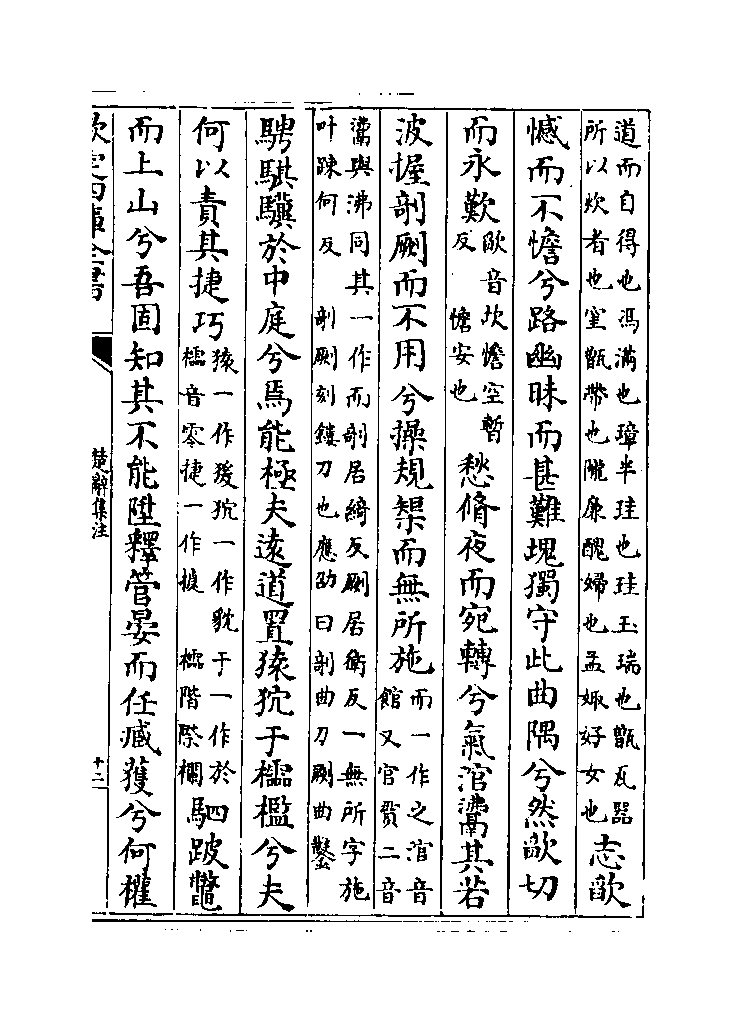 道而自得也馮滿也璋半珪也珪玉瑞也甑瓦器
所以炊者也窐甑帶也隴廉醜婦也孟娵好女也志歊
憾而不憺兮路幽昧而甚難塊獨守此曲隅兮然歊切
而永歎歊音坎憺空暫
反憺安也愁脩夜而宛轉兮氣涫𩱈其若
波握剞劂而不用兮操規榘而無所施而一作之涫音
館又官貫二音
𩱈與沸同其一作而剞居綺反劂居衛反一無所字施
叶疎何反剞劂刻鏤刀也應劭曰剞曲刀劂曲鑿
騁騏驥於中庭兮焉能極夫遠道置猿狖于櫺檻兮夫
何以責其捷巧猿一作猨狖一作貁于一作於
櫺音零捷一作㨗櫺階際欄駟跛鼈
而上山兮吾固知其不能陞釋管晏而任臧獲兮何權
欽定四庫全書
楚辭集注
十二